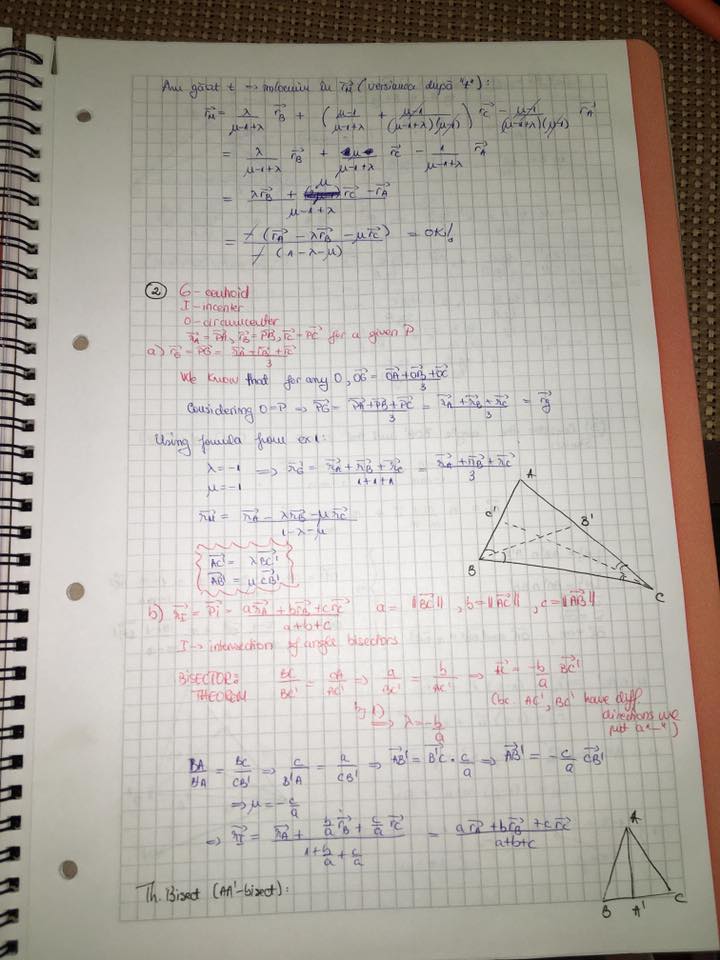 Am găsit t → înlocuim în r⃗_M (versiunea după "t"):
r⃗_M = λ/(μ-1+λ) r⃗_B + ( (μ-1)/(μ-1+λ) + (μ-1)/((μ-1+λ)(μ-1)) ) r⃗_C - (μ-1)/((μ-1+λ)(μ-1)) r⃗_A
= λ/(μ-1+λ) r⃗_B + μ/(μ-1+λ) r⃗_C - 1/(μ-1+λ) r⃗_A
= (λr⃗_B + μ r⃗_C - r⃗_A)/(μ-1+λ)
= -(r⃗_A - λr⃗_B - μr⃗_C) / -(1-λ-μ) = OK!
② G- centroid
I- incenter
O- circumcenter
r⃗_A = P⃗A, r⃗_B = P⃗B, r⃗_C = P⃗C for a given P
a) r⃗_G = P⃗G = (r⃗_A + r⃗_B + r⃗_C)/3
We know that for any O, O⃗G = (O⃗A + O⃗B + O⃗C)/3
Considering O=P ⇒ P⃗G = (P⃗A + P⃗B + P⃗C)/3 = (r⃗_A + r⃗_B + r⃗_C)/3 = r⃗_G
Using formula from ex 1:
λ = -1
μ = -1 ⇒ r⃗_G = (r⃗_A + r⃗_B + r⃗_C)/(1+1+1) = (r⃗_A + r⃗_B + r⃗_C)/3
r⃗_M = (r⃗_A - λr⃗_B - μr⃗_C)/(1-λ-μ)
A
C'
B'
B
C
AC⃗' = λ BC⃗'
AB⃗' = μ CB⃗'
b) r⃗_I = P⃗I = (a r⃗_A + b r⃗_B + c r⃗_C)/(a+b+c) a = ||B⃗C||, b = ||A⃗C||, c = ||A⃗B||
I → intersection of angle bisectors
BISECTOR THEOREM: BC/BC' = CA/AC' ⇒ a/BC' = b/AC' ⇒ AC⃗' = -b/a BC⃗'
(bc. AC', BC' have diff directions we put a "-")
⇒ λ = -b/a
BA/B'A = BC/CB' ⇒ c/B'A = a/CB' ⇒ AB⃗' = B'C⃗ · c/a ⇒ AB⃗' = -c/a CB⃗'
⇒ μ = -c/a
⇒ r⃗_I = (r⃗_A + b/a r⃗_B + c/a r⃗_C)/(1 + b/a + c/a) = (a r⃗_A + b r⃗_B + c r⃗_C)/(a+b+c)
Th. Bisect (AA'-bisect):
A
B A' C